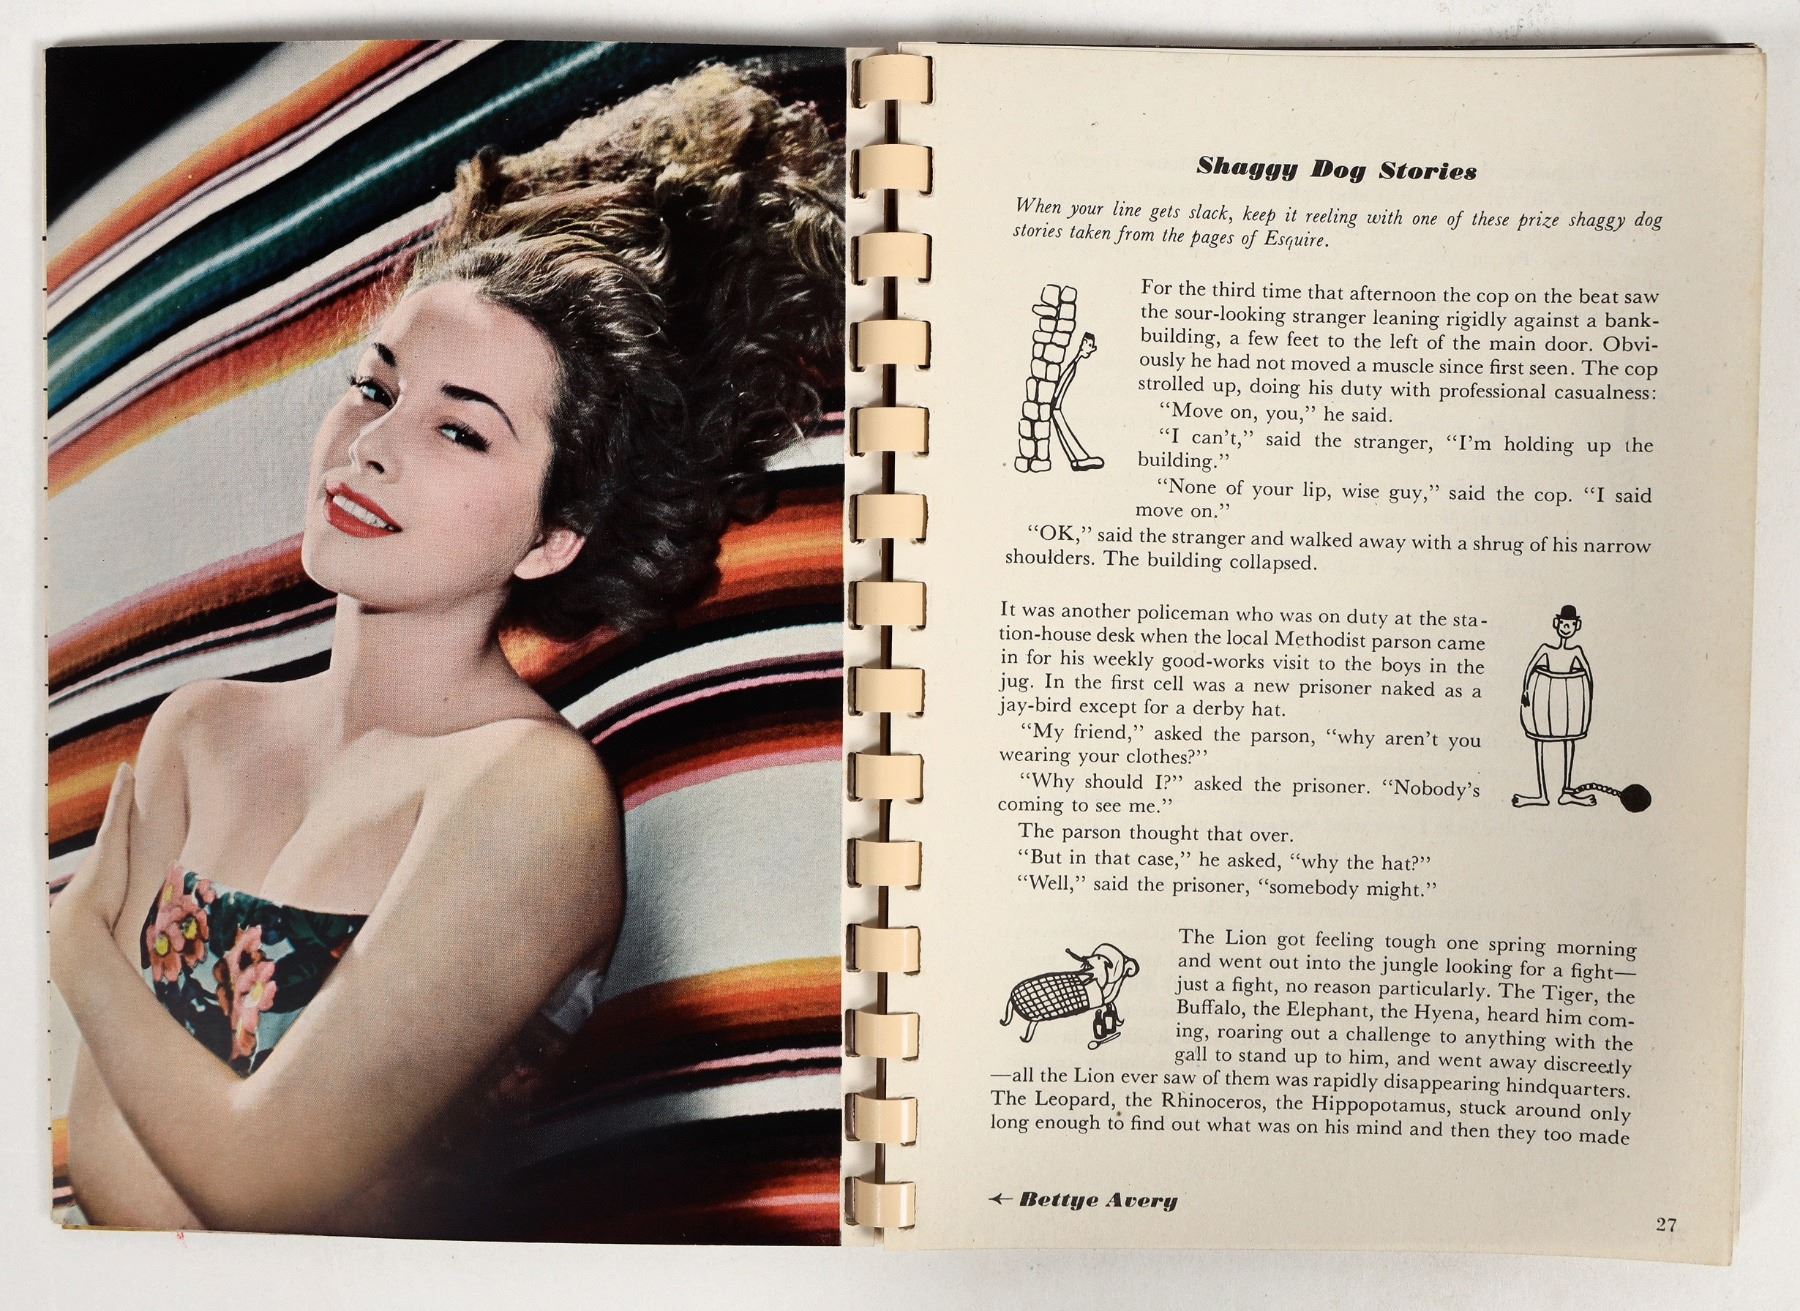 Shaggy Dog Stories
When your line gets slack, keep it reeling with one of these prize shaggy dog
stories taken from the pages of Esquire.
For the third time that afternoon the cop on the beat saw
the sour-looking stranger leaning rigidly against a bank-
building, a few feet to the left of the main door. Obvi-
ously he had not moved a muscle since first seen. The cop
strolled up, doing his duty with professional casualness:
“Move on, you,” he said.
“I can’t,” said the stranger, “I’m holding up the
building.”
“None of your lip, wise guy,” said the cop. “I said
move on.”
“OK,” said the stranger and walked away with a shrug of his narrow
shoulders. The building collapsed.
It was another policeman who was on duty at the sta-
tion-house desk when the local Methodist parson came
in for his weekly good-works visit to the boys in the
jug. In the first cell was a new prisoner naked as a
jay-bird except for a derby hat.
“My friend,” asked the parson, “why aren’t you
wearing your clothes?”
“Why should I?” asked the prisoner. “Nobody’s
coming to see me.”
The parson thought that over.
“But in that case,” he asked, “why the hat?”
“Well,” said the prisoner, “somebody might.”
The Lion got feeling tough one spring morning
and went out into the jungle looking for a fight—
just a fight, no reason particularly. The Tiger, the
Buffalo, the Elephant, the Hyena, heard him com-
ing, roaring out a challenge to anything with the
gall to stand up to him, and went away discreetly
—all the Lion ever saw of them was rapidly disappearing hindquarters.
The Leopard, the Rhinoceros, the Hippopotamus, stuck around only
long enough to find out what was on his mind and then they too made
← Bettye Avery
27